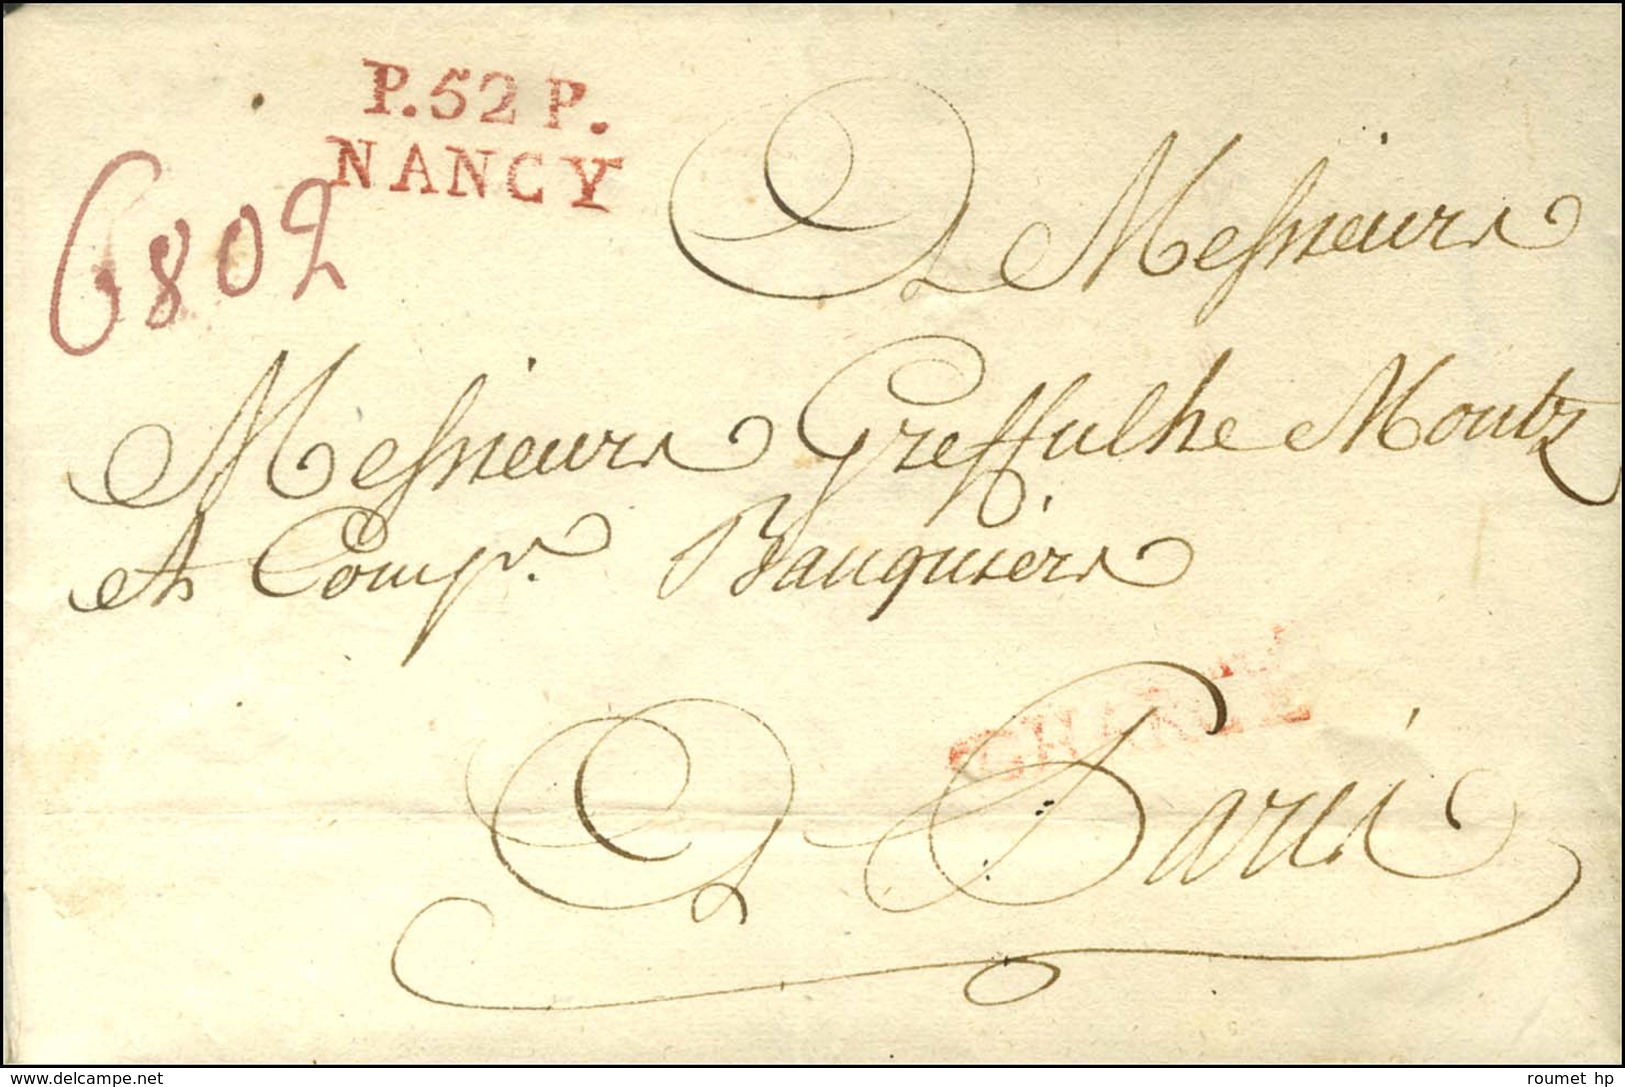 P.52 P.
NANCY
6802
A Messieurs
Messieurs Greffulhe Montz
et Comp.e Banquiers
CHARGÉ
A Paris
delcampe.net
roumet hp